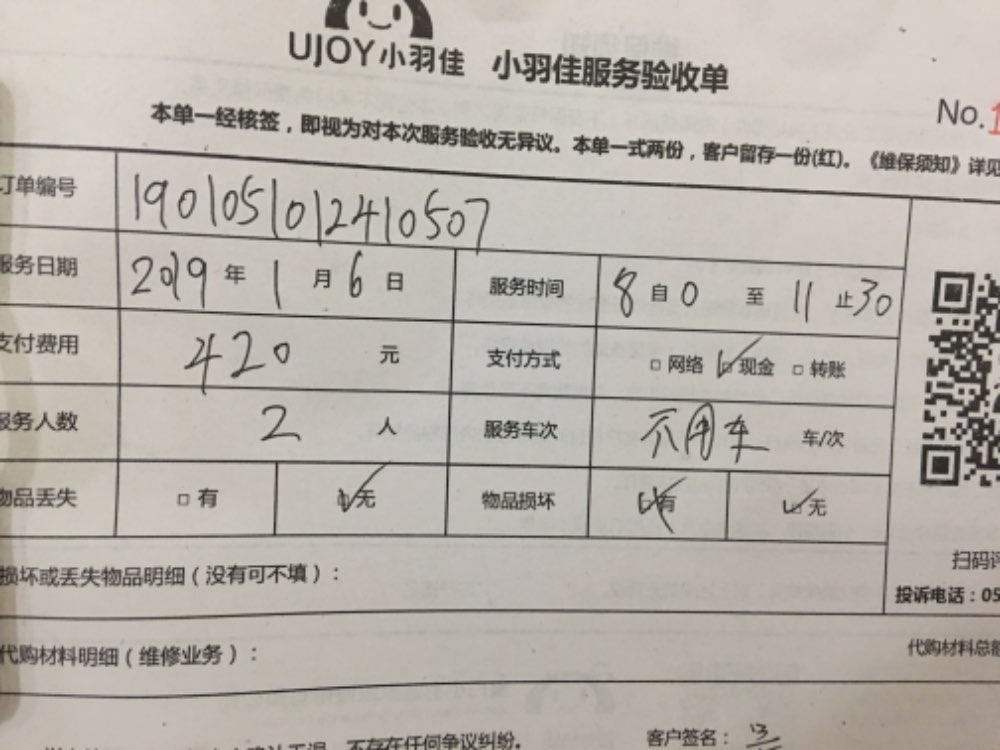 UJOY小羽佳 小羽佳服务验收单
No.1
本单一经核签，即视为对本次服务验收无异议。本单一式两份，客户留存一份(红)。《维保须知》详见
订单编号 1901051012410507
服务日期 2019 年 1 月 6 日 服务时间 8 自 0 至 11 止 30
支付费用 420 元 支付方式 □ 网络 ☑ 现金 □ 转账
服务人数 2 人 服务车次 不用车 车/次
物品丢失 □ 有 ☑ 无 物品损坏 ☑ 有 ☑ 无
扫码评
损坏或丢失物品明细（没有可不填）：
投诉电话：05
代购材料明细（维修业务）：
代购材料总额
不存在任何争议纠纷。
客户签名：